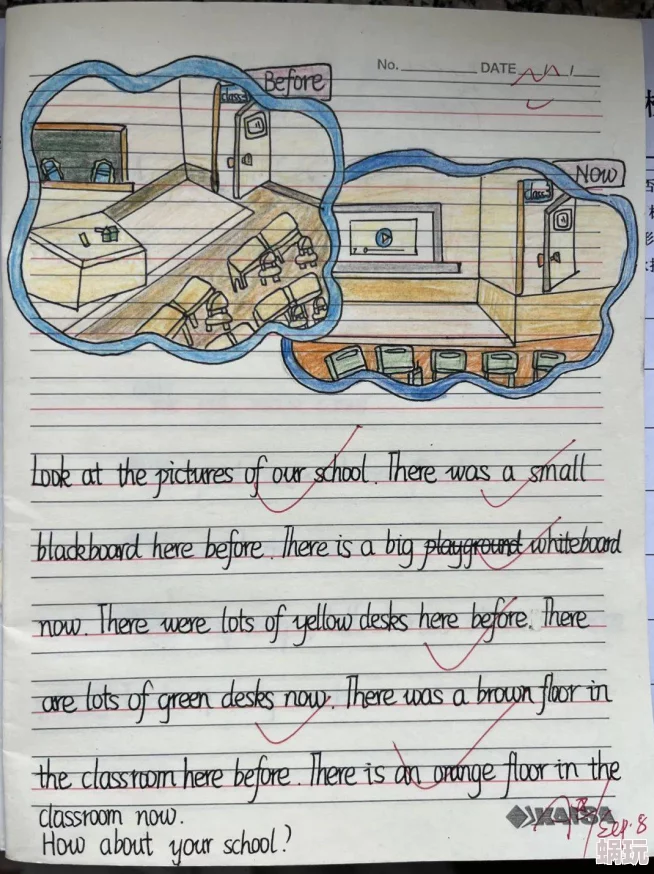 No. DATE
Before
class
Now
class
Look at the pictures of our school. There was a small
blackboard here before. There is a big playground whiteboard
now. There were lots of yellow desks here before. There
are lots of green desks now. There was a brown floor in
the classroom here before. There is an orange floor in the
classroom now.
How about your school?
KAISA
Sep. 8
蜗玩